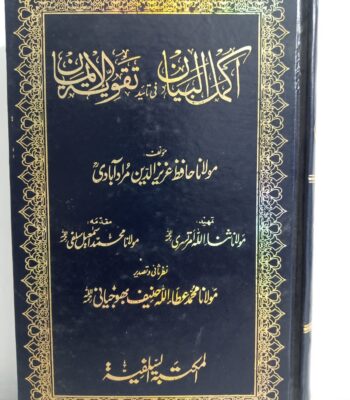 اکمل البیان فی تائید تقویۃ الایمان
مؤلف:
مولانا حافظ عزیز الدین مراد آبادیؒ
تمہید: مقدمہ:
مولانا ثناء اللہ امرتسریؒ مولانا محمد اسمٰعیل سلفیؒ
نظرثانی و تصدیر
مولانا محمد عطاء اللہ حنیف بھوجیانیؒ
المکتبۃ السلفیۃ